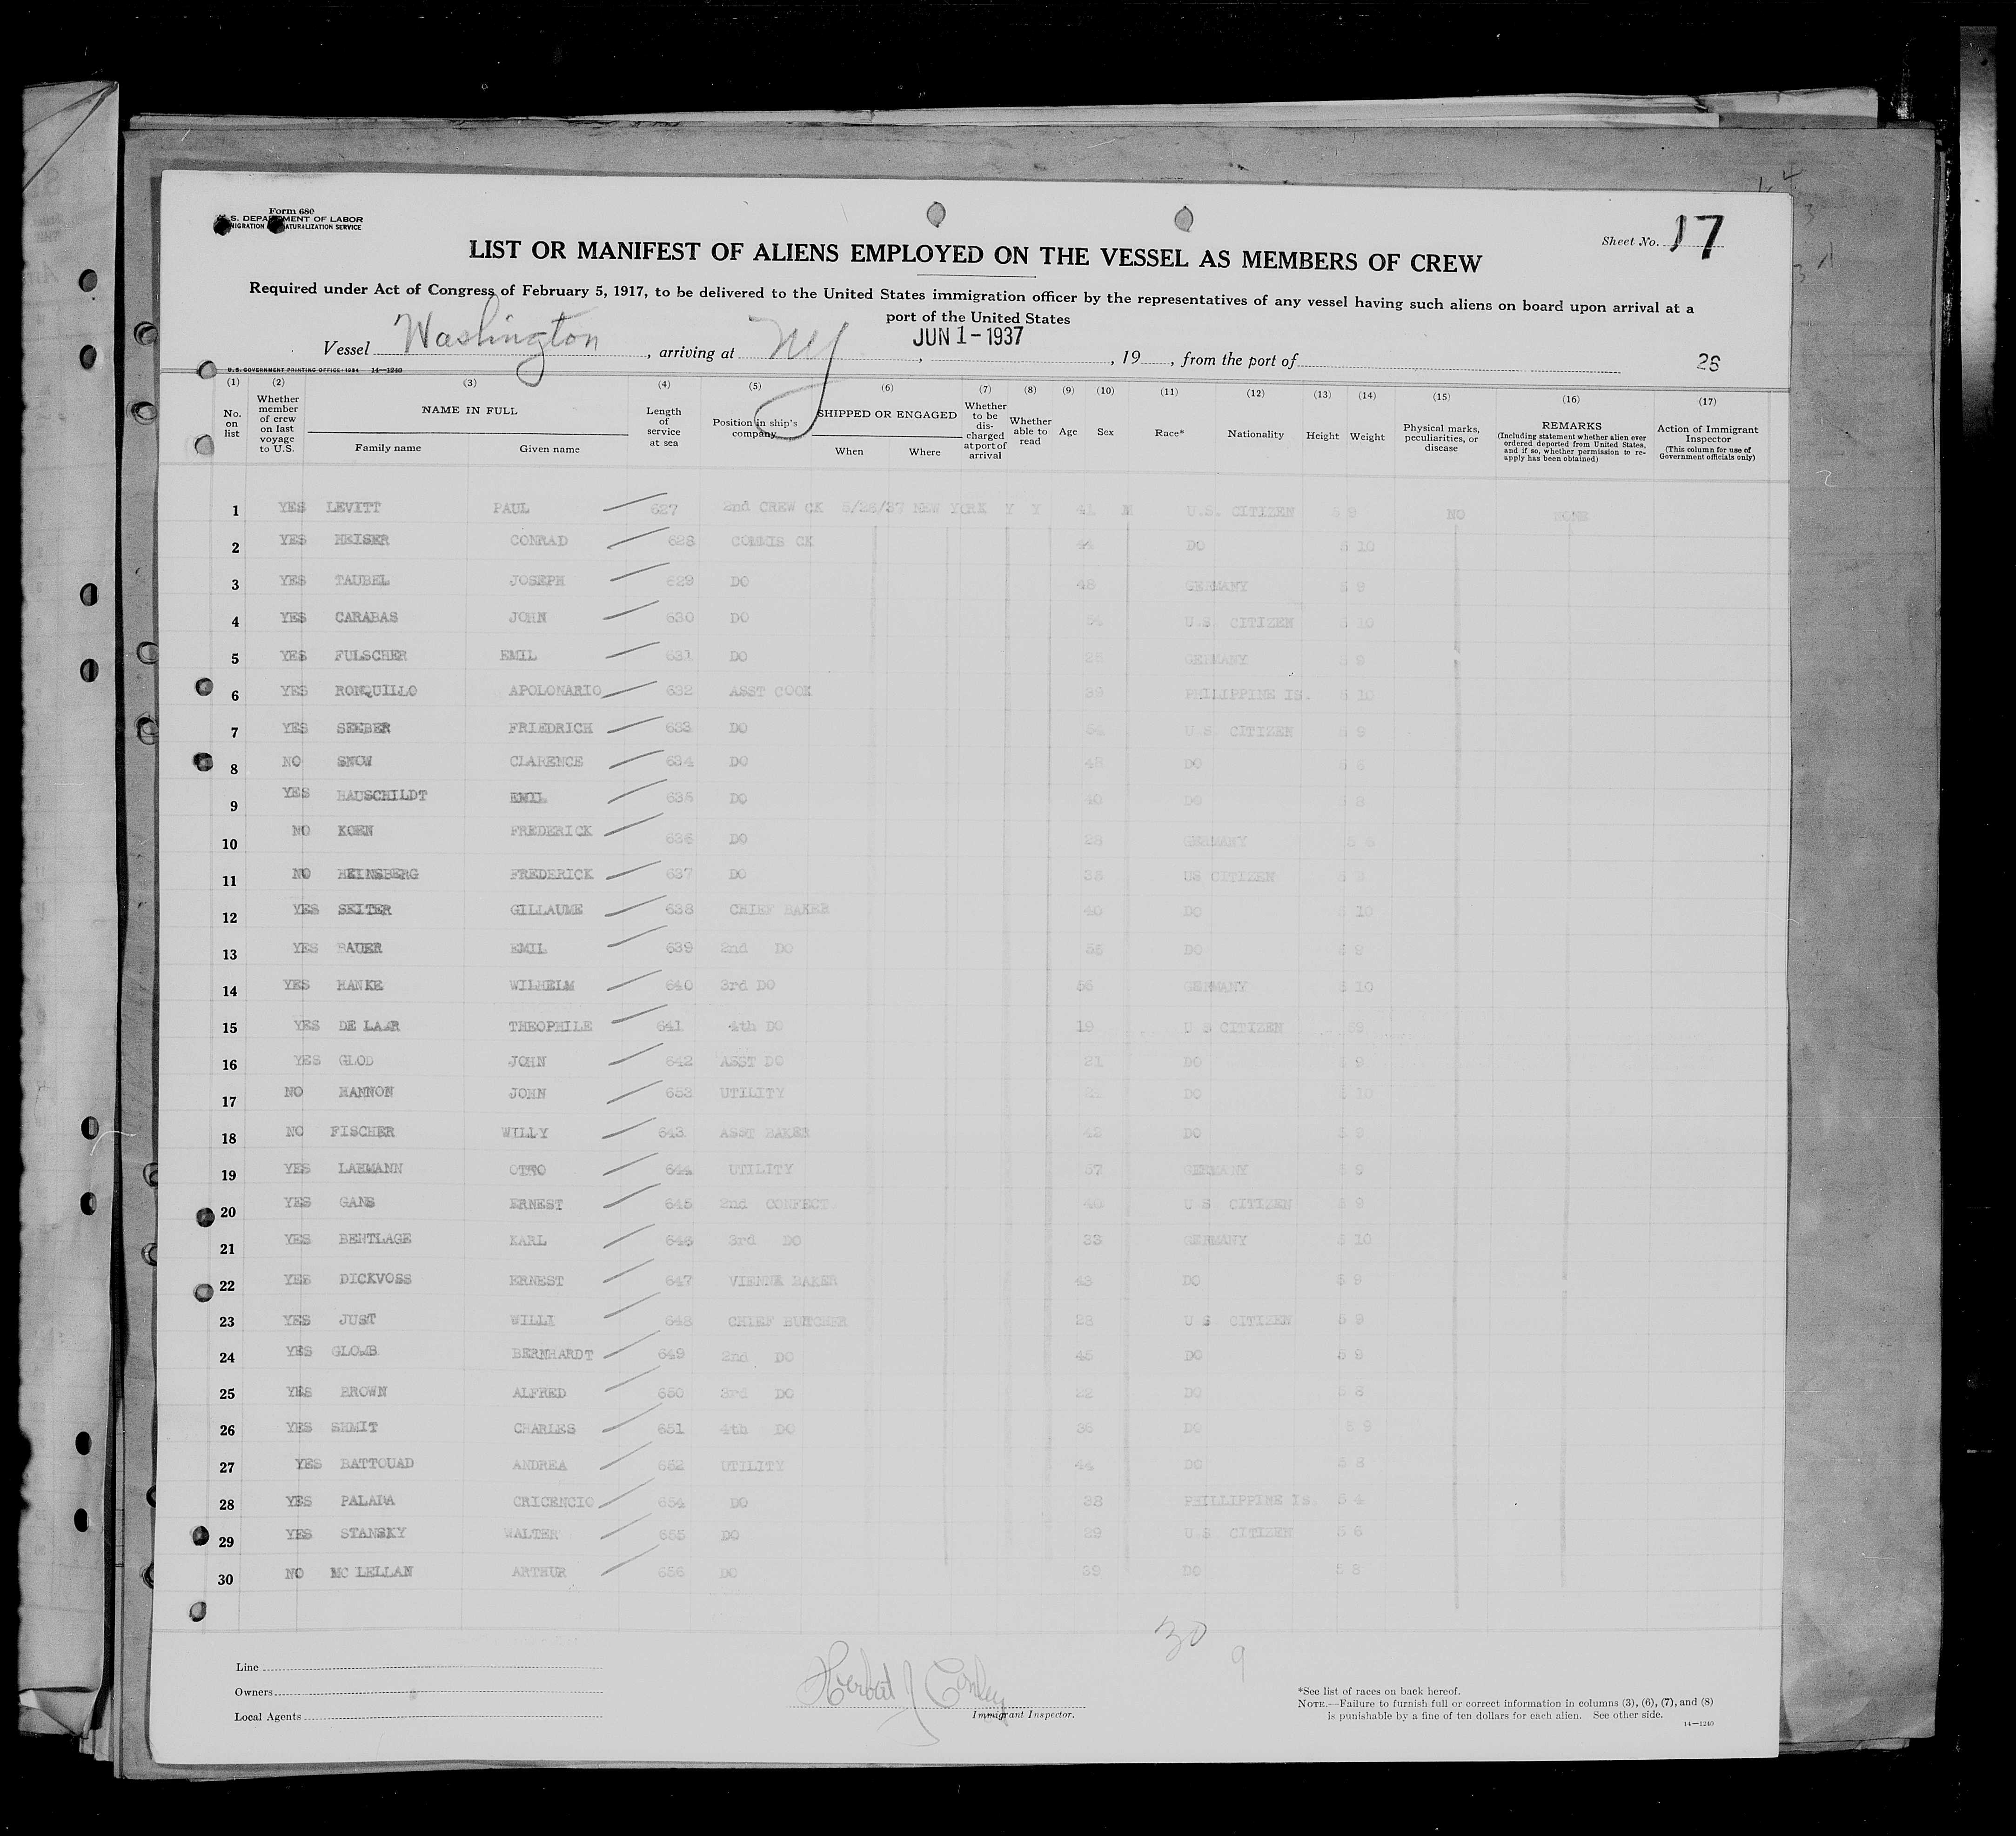 Form 680
U. S. DEPARTMENT OF LABOR
IMMIGRATION NATURALIZATION SERVICE
Sheet No. 17
LIST OR MANIFEST OF ALIENS EMPLOYED ON THE VESSEL AS MEMBERS OF CREW
Required under Act of Congress of February 5, 1917, to be delivered to the United States immigration officer by the representatives of any vessel having such aliens on board upon arrival at a
port of the United States
Vessel Washington, arriving at NY, JUN 1-1937, 19, from the port of 26
U. S. GOVERNMENT PRINTING OFFICE: 1934 14—1240
(1) (2) (3) (4) (5) (6) (7) (8) (9) (10) (11) (12) (13) (14) (15) (16) (17)
No. on list
Whether member of crew on last voyage to U.S.
NAME IN FULL
Family name Given name
Length of service at sea
Position in ship's company
SHIPPED OR ENGAGED
When Where
Whether to be discharged at port of arrival
Whether able to read
Age Sex Race* Nationality Height Weight
Physical marks, peculiarities, or disease
REMARKS
(Including statement whether alien ever ordered deported from United States, and if so, whether permission to re-apply has been obtained)
Action of Immigrant Inspector
(This column for use of Government officials only)
1 YES LEVITT PAUL 627 2nd CREW CK 5/28/37 NEW YORK Y Y 41 M U.S. CITIZEN 5 9 NO NONE
2 YES HEISER CONRAD 628 COMMIS CK 44 DO 5 10
3 YES TAUBEL JOSEPH 629 DO 48 GERMANY 5 9
4 YES CARABAS JOHN 630 DO 54 U.S. CITIZEN 5 10
5 YES FULSCHER EMIL 631 DO 25 GERMANY 5 9
6 YES RONQUILLO APOLONARIO 632 ASST COOK 39 PHILIPPINE IS. 5 10
7 YES SEEBER FRIEDRICH 633 DO 54 U.S. CITIZEN 5 9
8 NO SNOW CLARENCE 634 DO 48 DO 5 8
9 YES HAUSCHILDT EMIL 635 DO 40 DO 5 8
10 NO KORN FREDERICK 636 DO 28 GERMANY 5 6
11 NO HEINSBERG FREDERICK 637 DO 38 US CITIZEN 5
12 YES SEITER GILLAUME 638 CHIEF BAKER 40 DO 5 10
13 YES BAUER EMIL 639 2nd DO 55 DO 5 9
14 YES HANKE WILHELM 640 3rd DO 56 GERMANY 5 10
15 YES DE LAAR THEOPHILE 641 4th DO 19 U S CITIZEN 59
16 YES GLOD JOHN 642 ASST DO 21 DO 9
17 NO HANNON JOHN 653 UTILITY DO 5 10
18 NO FISCHER WILLY 643 ASST BAKER 42 DO 5 9
19 YES LAHMANN OTTO 644 UTILITY 37 GERMANY 5 9
20 YES GANS ERNEST 645 2nd CONFECT 40 U S CITIZEN 5 9
21 YES BENTLAGE KARL 646 3rd DO 33 GERMANY 5 10
22 YES DICKVOSS ERNEST 647 VIENNE BAKER 43 DO 5 9
23 YES JUST WILLI 648 CHIEF BUTCHER 28 U S. CITIZEN 5 9
24 YES GLOMB BERNHARDT 649 2nd DO 45 DO 5 9
25 YES BROWN ALFRED 650 3rd DO 22 DO 5 8
26 YES SHMIT CHARLES 651 4th DO 36 DO 5 9
27 YES BATTOUAD ANDREA 652 UTILITY 44 DO 5 8
28 YES PALADA CRICENCIO 654 DO 38 PHILLIPPINE IS. 5 4
29 YES STANSKY WALTER 655 DO 29 U.S. CITIZEN 5 6
30 NO MC LELLAN ARTHUR 656 DO 39 DO 5 8
30 9
Line
Owners
Local Agents
Herbert J Conley
Immigrant Inspector.
*See list of races on back hereof.
NOTE.—Failure to furnish full or correct information in columns (3), (6), (7), and (8)
is punishable by a fine of ten dollars for each alien. See other side.
14—1240